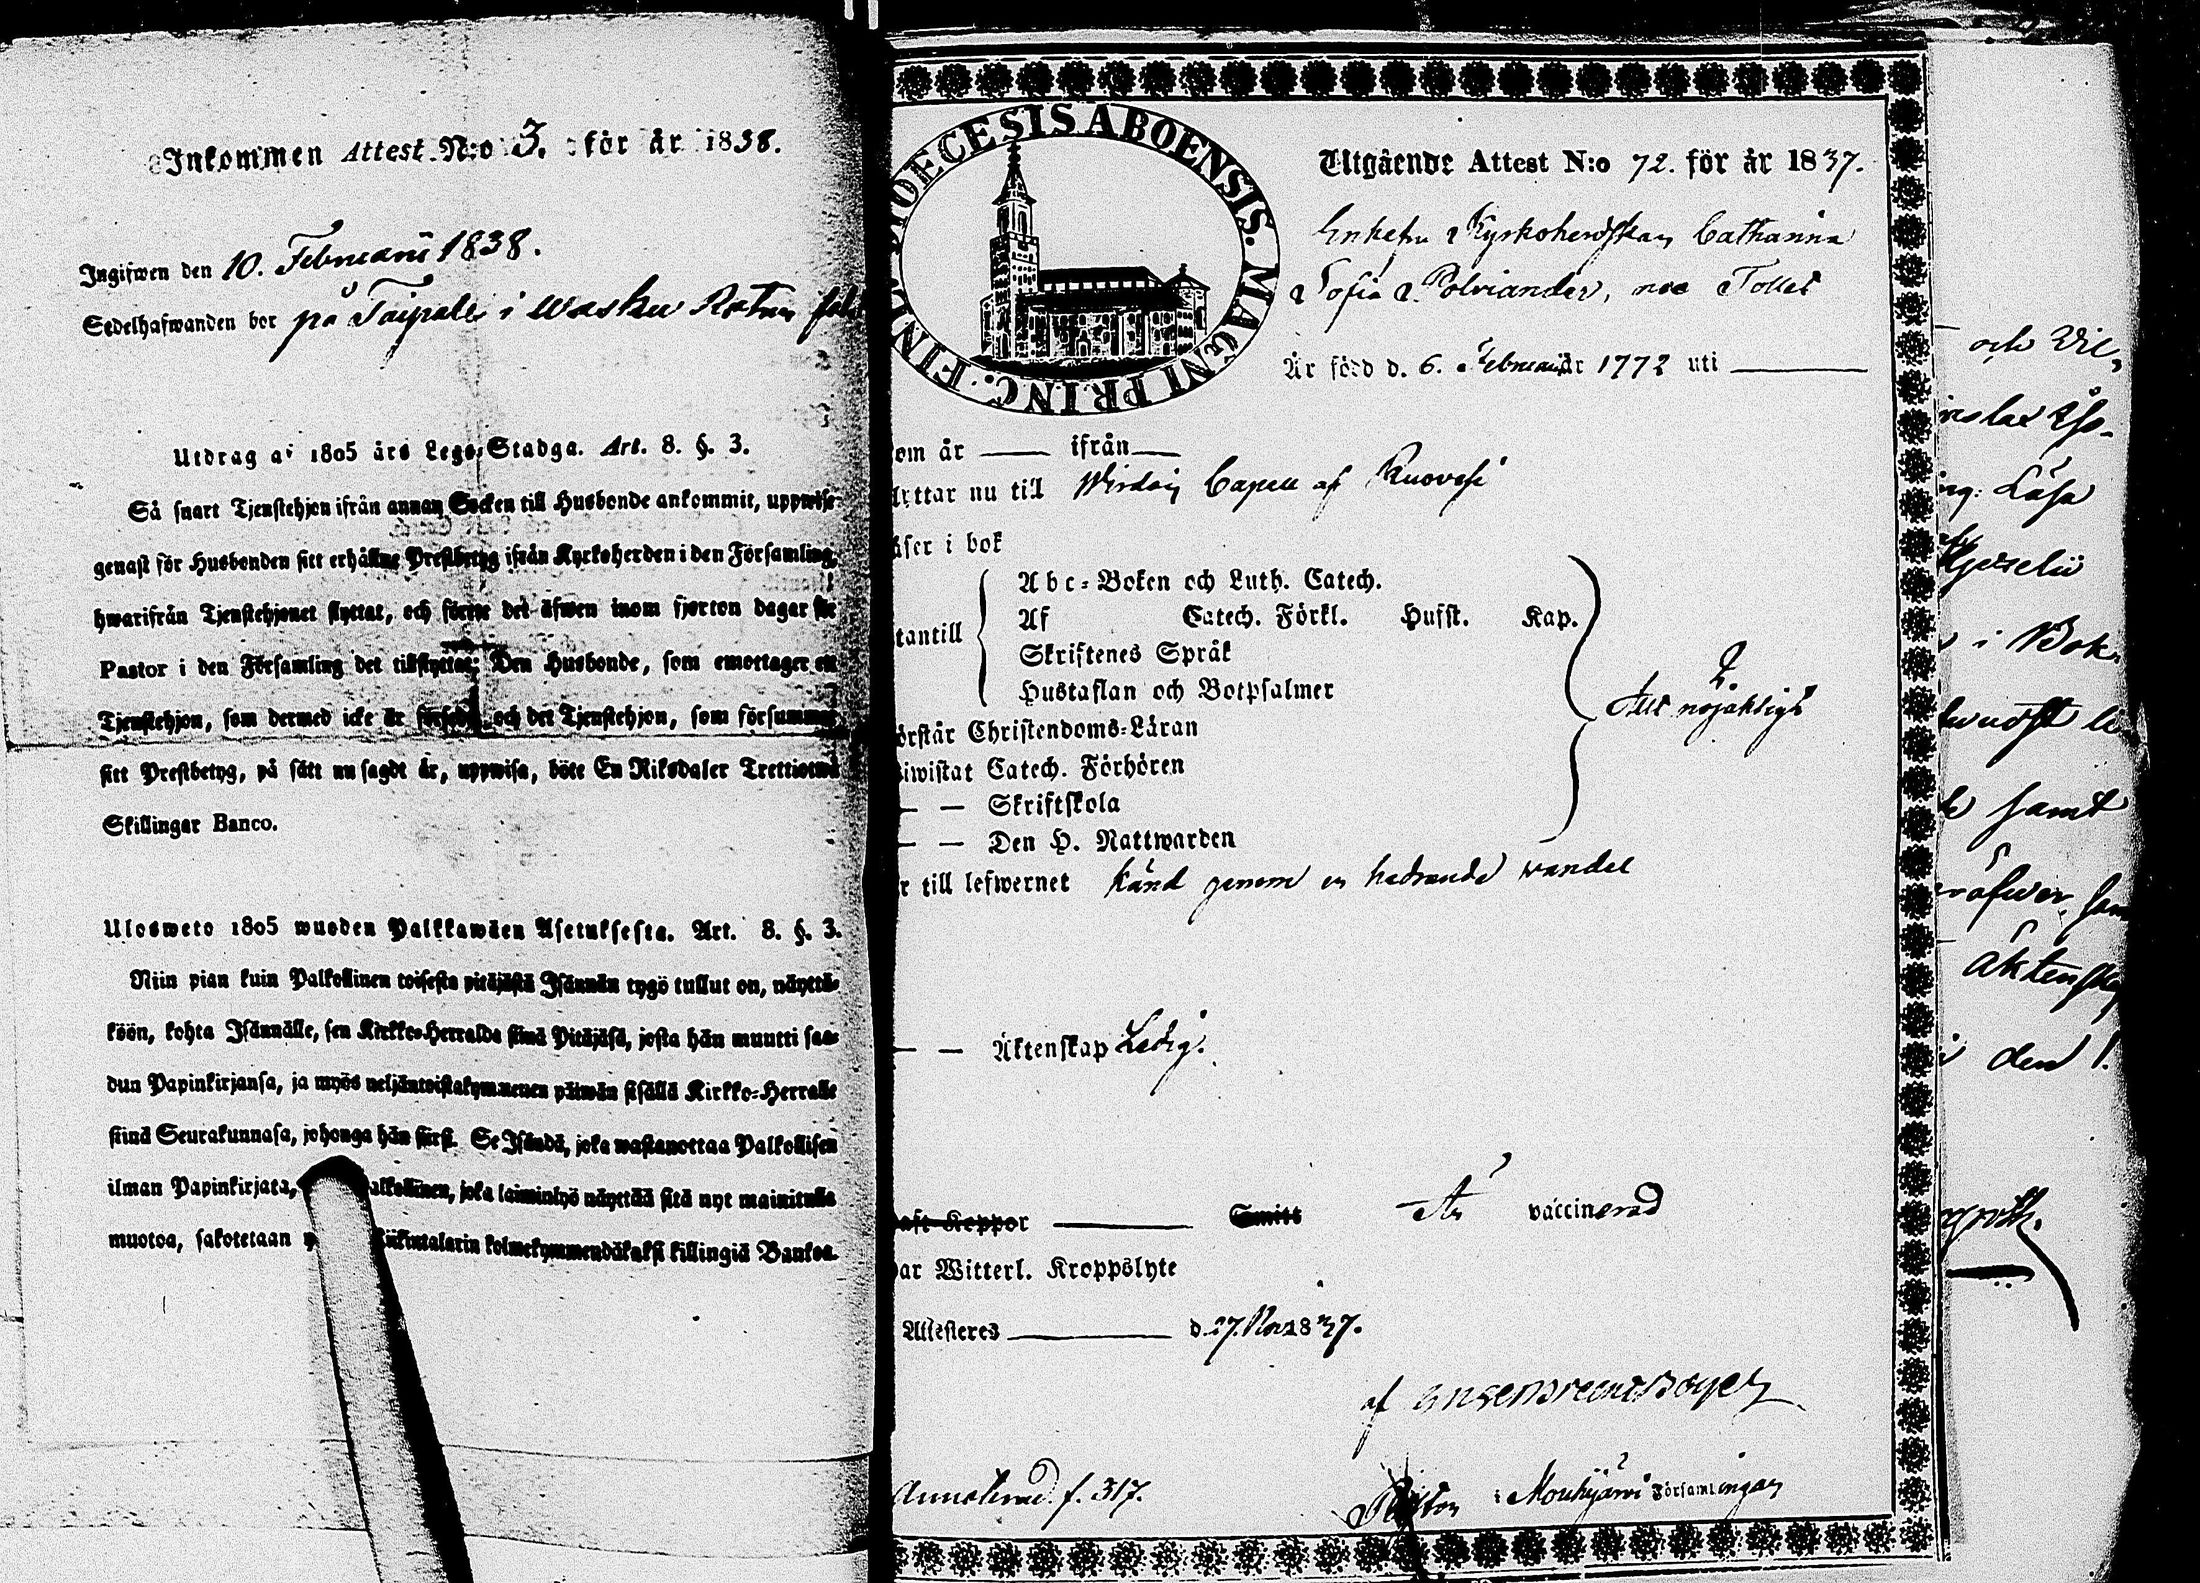 Inkommen Attest N:o 3. för år 1838.
Ingifwen den 10. Februarii 1838.
Sedelhafwanden bor på Taipale i Wasku Rotan
Utdrag af 1805 års Lego-Stadga. Art. 8. §. 3.
Så snart Tjenstehjon ifrån annan Socken till Husbonde ankommit, uppwise
genast för Husbonden sitt erhållne Prestbetyg ifrån Kyrkoherden i den Församling,
hwarifrån Tjenstehjonet flyttat, och förete det äfwen inom fjorton dagar för
Pastor i den Församling det tillflyttat; Den Husbonde, som emottager ett
Tjenstehjon, som dermed icke är försedt, och det Tjenstehjon, som försummar
sitt Prestbetyg, på sätt nu sagdt är, uppwisa, böte En Riksdaler Trettiotwå
Skillingar Banco.
Ulosweto 1805 wuoden Palkkawäen Asetuksesta. Art. 8. §. 3.
Niin pian kuin Palkollinen toisesta pitäjästä Isännän tygö tullut on, näyttä-
köön, kohta Isännälle, sen Kirkko-Herralda siinä Pitäjäsä, josta hän muutti saa-
dun Papinkirjansa, ja myös neljäntoistakymmenen päiwän sisällä Kirkko-Herralle
siinä Seurakunnasa, johonga hän siirsi. Se Isändä, joka wastanottaa Palkollisen
ilman Papinkirjata, alkollinen, joka laiminlyö näyttää sitä nyt mainitulla
muotoa, sakotetaan Riikintalarin kolmekymmendäkaksi killingiä Bankoa.
FINL. DIOECESIS ABOENSIS. MAGNI PRINC.
Utgående Attest N:o 72. för år 1837.
Enkefru Kyrkoherdskan Catharina
Sofia Polviander, née Tollet
Är född d. 6. Februarii år 1772 uti
om år ifrån
lyttar nu till Wirdois Capell af Ruovesi
äser i bok
Abc-Boken och Luth. Catech.
Af Catech. Förkl. Husst. Kap.
tantill
Skriftenes Språk
Hustaflan och Botpsalmer
Allt nöjaktligt
örstår Christendoms-Läran
iwistat Catech. Förhören
— — Skriftskola
— — Den H. Nattwarden
r till lefwernet känd genom en hedrande wandel
— — Äktenskap Ledig.
aft Koppor Smitt Är vaccinerad
ar Witterl. Kroppslyte
Attesteres d. 27. Nov. 1837.
af
Annoterad f. 317.
Pastor i Mouhijärvi Församlingen
och
Läsa
i Bok
samt
Äktensk
den 1.